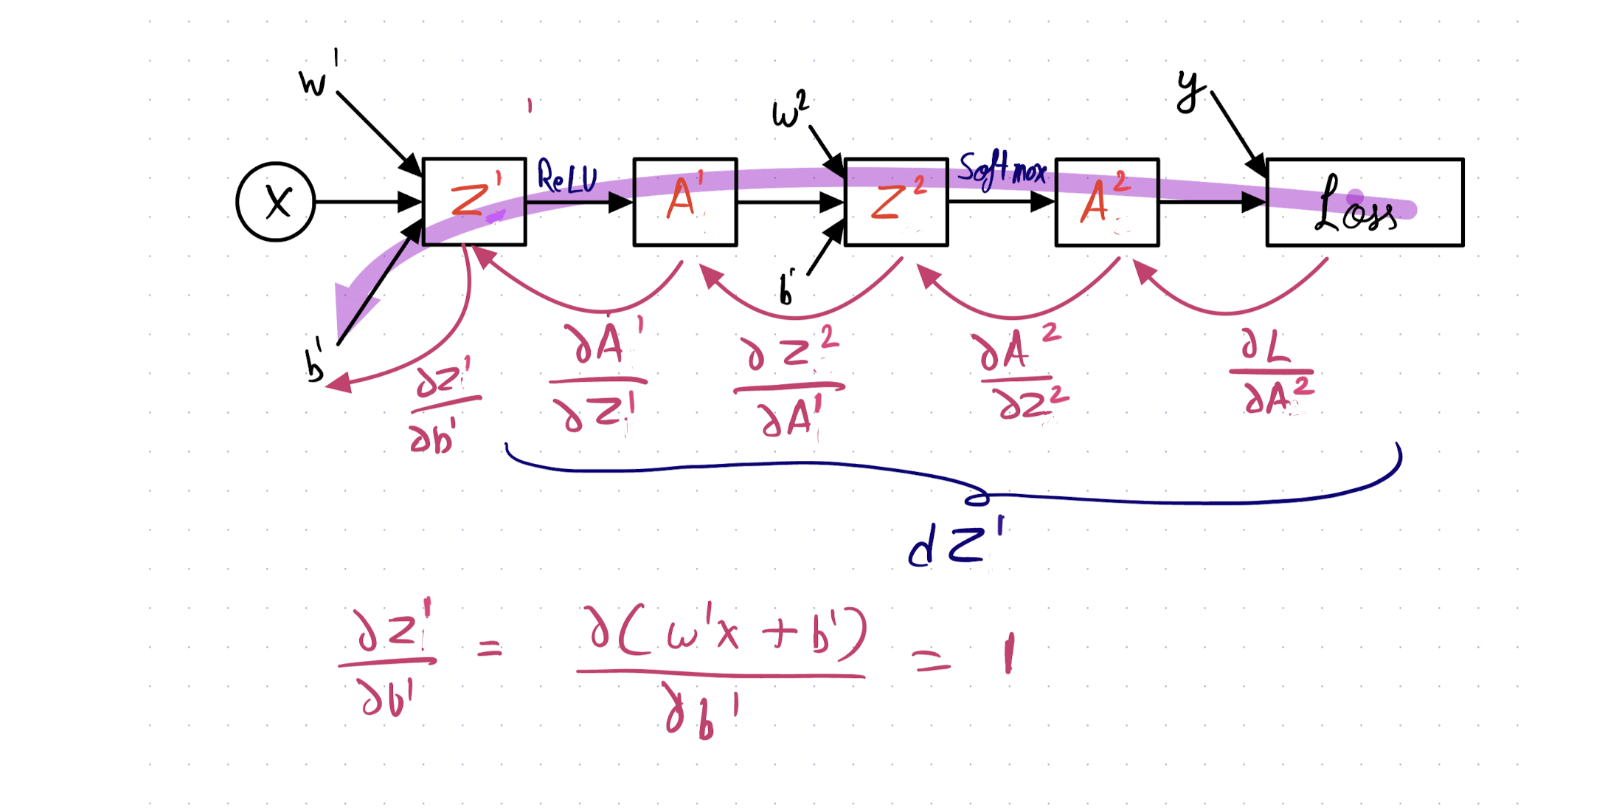 w¹
w² y
X Z¹ ReLU A¹ Z² Softmax A² Loss
b¹
b¹
∂Z¹/∂b¹ ∂A¹/∂Z¹ ∂Z²/∂A¹ ∂A²/∂Z² ∂L/∂A²
dZ¹
∂Z¹/∂b¹ = ∂(w¹x + b¹)/∂b¹ = 1